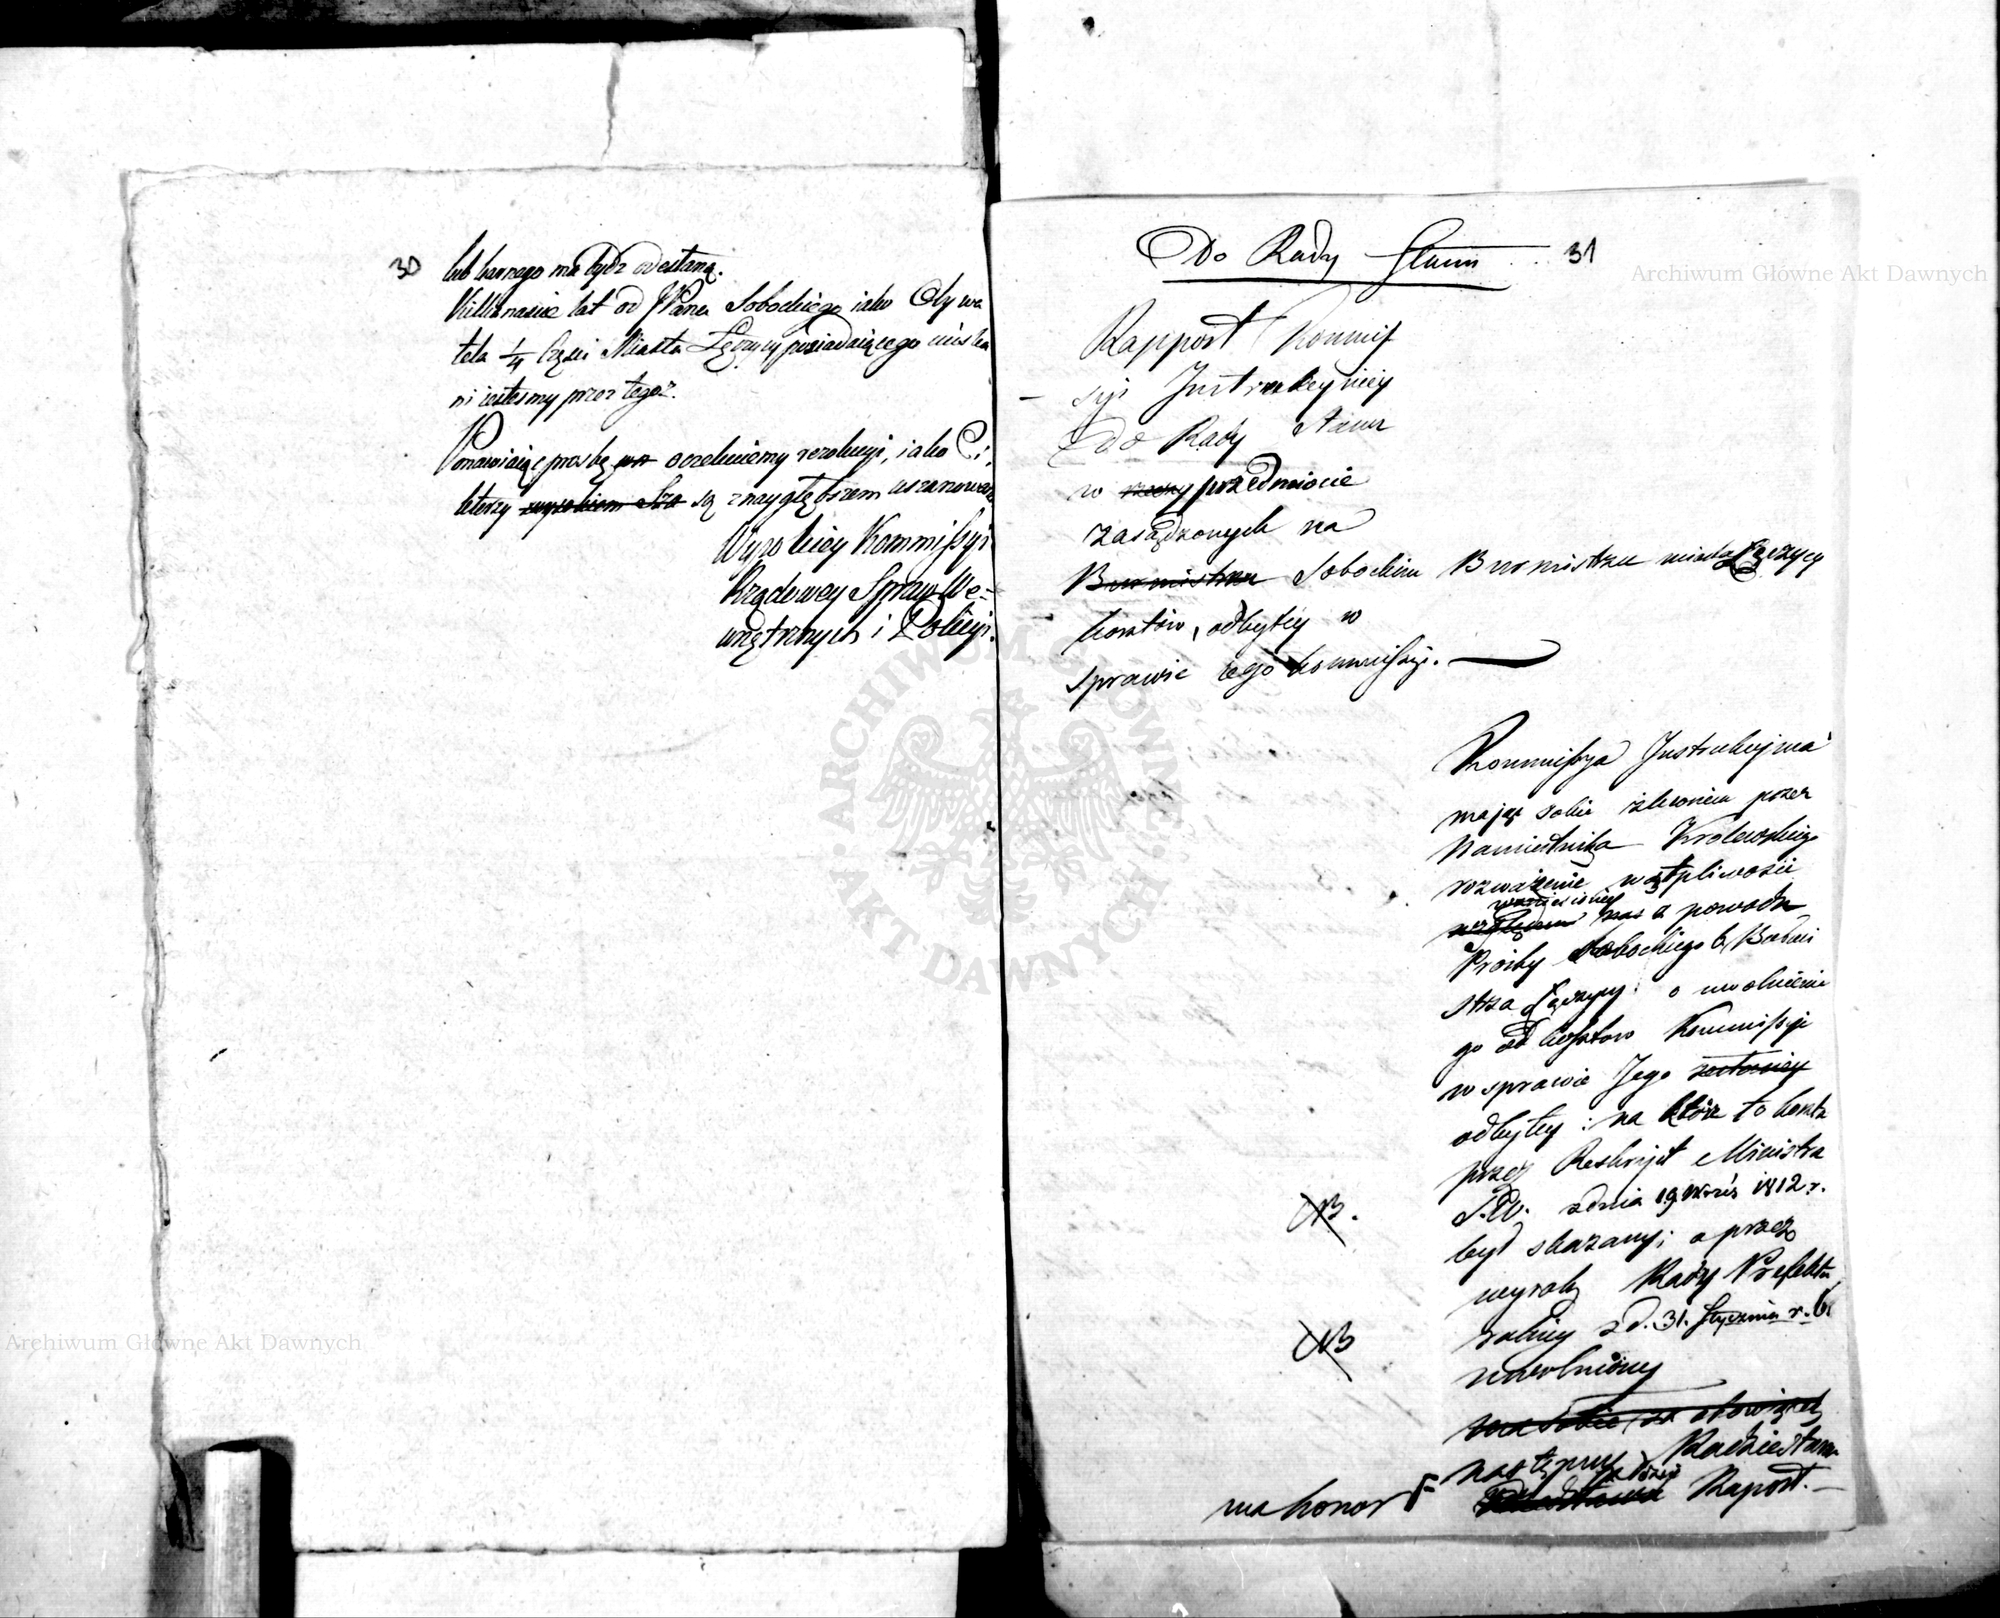 30
lub karnego ma bydź odesłaną.
Kilkanaście lat od JPana Sobockiego iako Obywa
tela 1/4 Części Miasta Łęczycy posiadaiącego
ni iesteśmy przez tegoż.
Ponawiaiąc prośbę oczekuiemy rezolucyi, iako Ci,
którzy są z naygłębszem uszanowan
Wysokiey Kommissyi
Rządowey Spraw We=
wnętrznych i Policyi.
Do Rady Stanu 31
Rapport Kommis
syi Instrukcyiney
Do Rady Stanu
w przedmiocie
zasądzonych na
Burmistrza Sobockim Burmistrzu miasta Łęczycy
kosztów, odbytey w
sprawie iego kommissyi.
Kommissya Instrukcyina
mając sobie zlecone przez
Namiestnika Królewskiego
rozważenie wątpliwości
z powodu
Prośby Sobockiego b. Burmi
strza Łęczycy o uwolnienie
go od kosztow Kommissyi
w sprawie Jego
odbytey: na które to koszta
przez Reskrypt Ministra
S.W. z dnia 19 Wrześ 1812 r.
był skazany; a przez
wyrok Rady Prefektu
ralney z d. 31. Stycznia r. b.
uwolniony
NB.
NB
ma honor
następny Radzie Stanu
Raport.
Archiwum Główne Akt Dawnych
Archiwum Główne Akt Dawnych
ARCHIWUM GŁÓWNE
AKT DAWNYCH